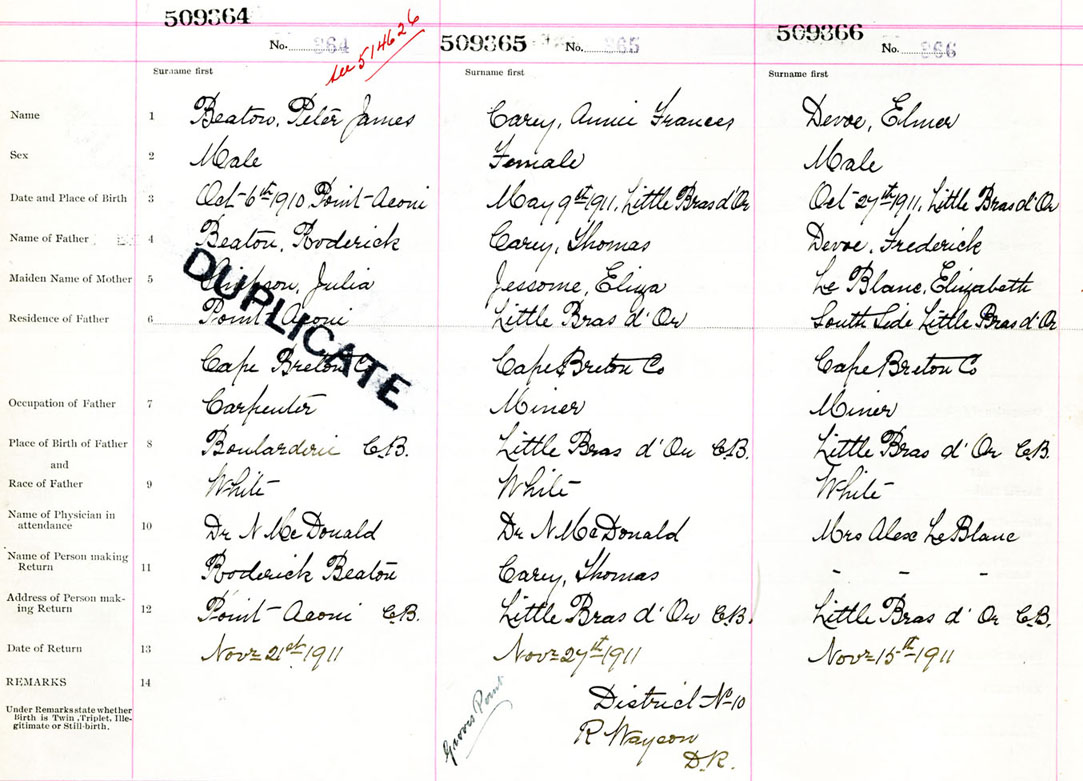 509364 509365 509366
No. 364 No. 365 No. 366
see 514626
Surname first Surname first Surname first
Name 1 Beaton, Peter James Carey, Annie Frances Devoe, Elmer
Sex 2 Male Female Male
Date and Place of Birth 3 Oct 6th 1910 Point Aconi May 9th 1911, Little Bras d'Or Oct 27th 1911, Little Bras d'Or
Name of Father 4 Beaton, Roderick Carey, Thomas Devoe, Frederick
DUPLICATE
Maiden Name of Mother 5 Simpson, Julia Jessome, Eliza Le Blanc, Elizabeth
Residence of Father 6 Point Aconi Little Bras d'Or South Side Little Bras d'Or
Cape Breton Co Cape Breton Co Cape Breton Co
Occupation of Father 7 Carpenter Miner Miner
Place of Birth of Father 8 Boularderie C.B. Little Bras d'Or C.B. Little Bras d'Or C.B.
and
Race of Father 9 White White White
Name of Physician in
attendance 10 Dr N McDonald Dr N McDonald Mrs Alex LeBlanc
Name of Person making
Return 11 Roderick Beaton Carey, Thomas - - -
Address of Person mak-
ing Return 12 Point Aconi C.B. Little Bras d'Or C.B. Little Bras d'Or C.B.
Date of Return 13 Novr 21st 1911 Novr 27th 1911 Novr 15th 1911
REMARKS 14
Under Remarks state whether
Birth is Twin, Triplet, Ille-
gitimate or Still-birth.
Point
District No 10
R Wayson
D.R.